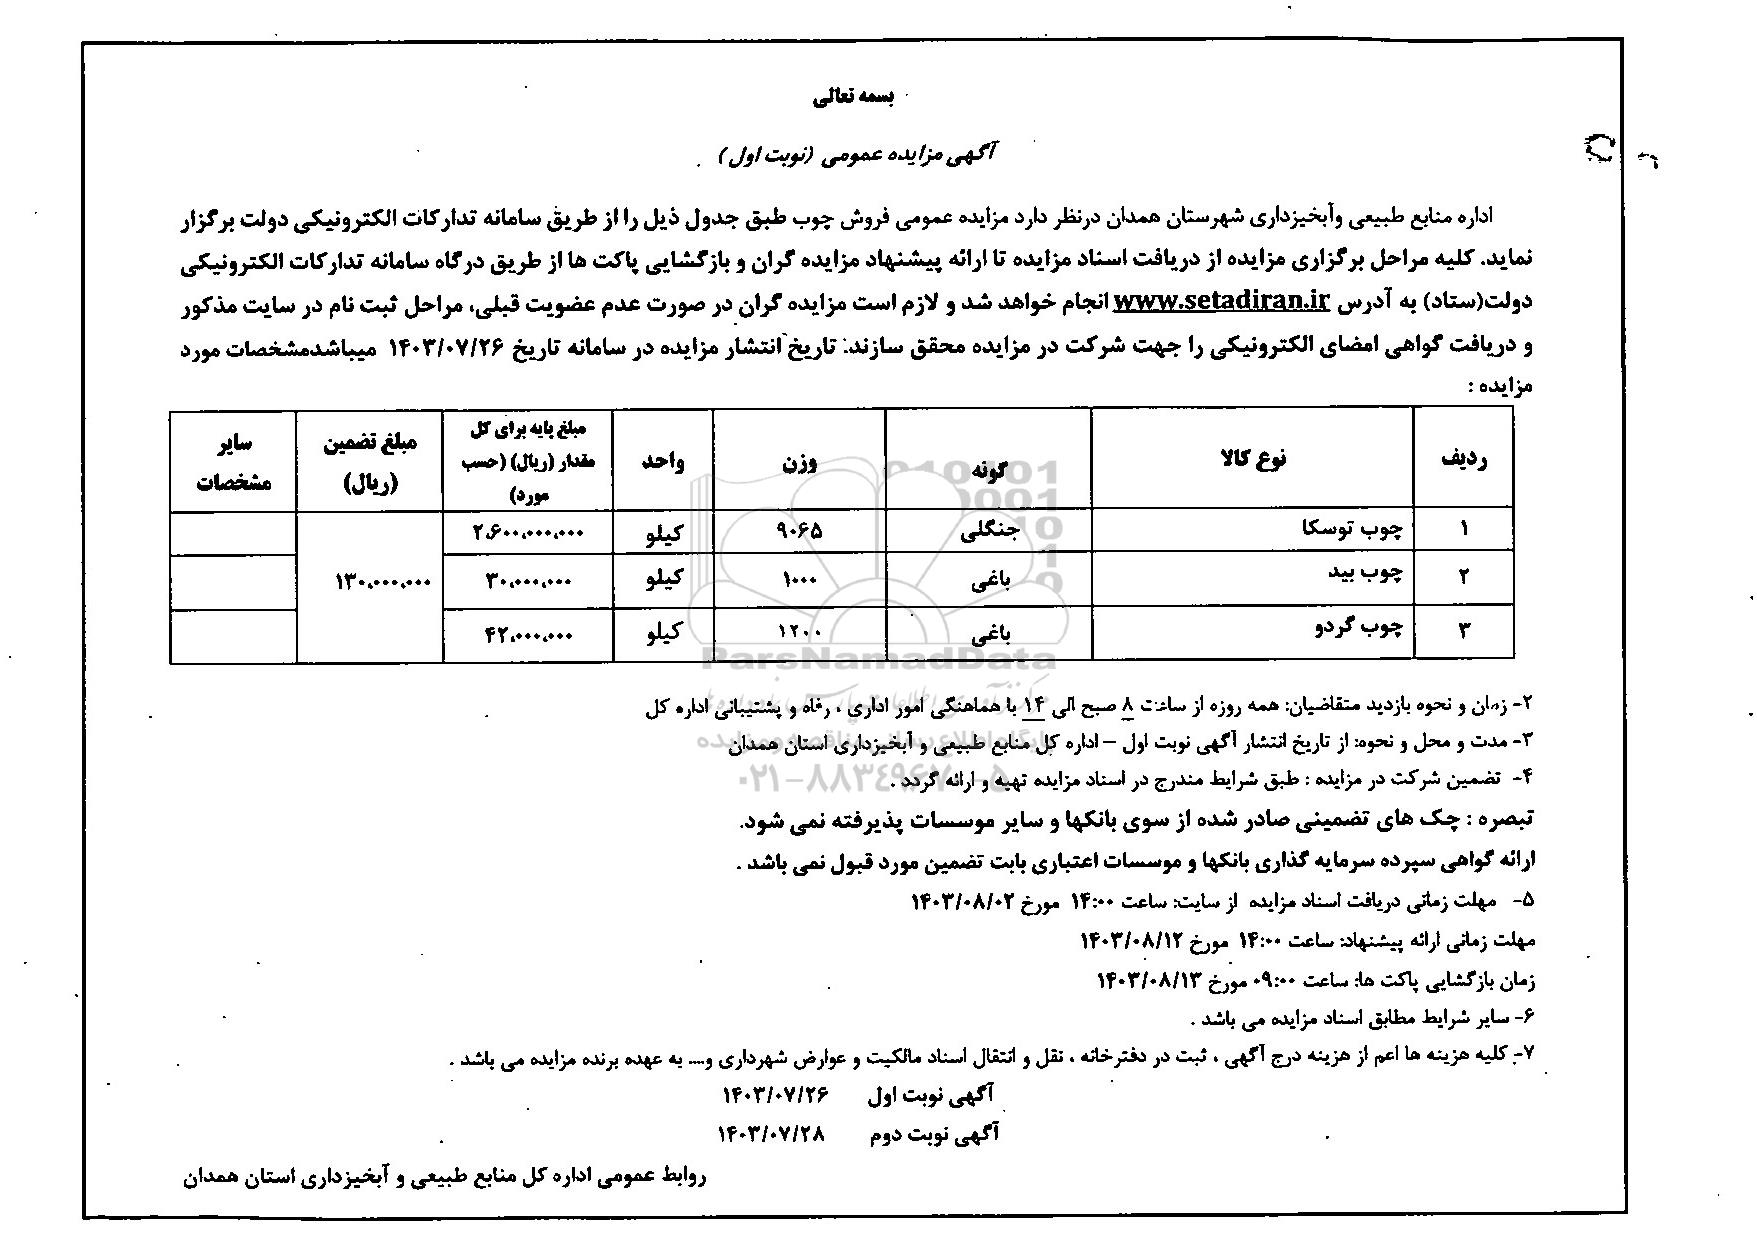 بسمه تعالی
آگهی مزایده عمومی (نوبت اول)
اداره منابع طبیعی وآبخیزداری شهرستان همدان درنظر دارد مزایده عمومی فروش چوب طبق جدول ذیل را از طریق سامانه تدارکات الکترونیکی دولت برگزار
نماید. کلیه مراحل برگزاری مزایده از دریافت اسناد مزایده تا ارائه پیشنهاد مزایده گران و بازگشایی پاکت ها از طریق درگاه سامانه تدارکات الکترونیکی
دولت(ستاد) به آدرس www.setadiran.ir انجام خواهد شد و لازم است مزایده گران در صورت عدم عضویت قبلی، مراحل ثبت نام در سایت مذکور
و دریافت گواهی امضای الکترونیکی را جهت شرکت در مزایده محقق سازند: تاریخ انتشار مزایده در سامانه تاریخ ۱۴۰۳/۰۷/۲۶ میباشدمشخصات مورد
مزایده :
ردیف نوع کالا گونه وزن واحد مبلغ پایه برای کل مقدار (ریال) (حسب مورد) مبلغ تضمین (ریال) سایر مشخصات
۱ چوب توسکا جنگلی ۹۰۶۵ کیلو ۲،۶۰۰،۰۰۰،۰۰۰
۲ چوب بید باغی ۱۰۰۰ کیلو ۳۰،۰۰۰،۰۰۰ ۱۳۰،۰۰۰،۰۰۰
۳ چوب گردو باغی ۱۲۰۰ کیلو ۴۲،۰۰۰،۰۰۰
ParsNamadData
۲- زمان و نحوه بازدید متقاضیان: همه روزه از ساعت ۸ صبح الی ۱۴ با هماهنگی امور اداری ، رفاه و پشتیبانی اداره کل
۳- مدت و محل و نحوه: از تاریخ انتشار آگهی نوبت اول – اداره کل منابع طبیعی و آبخیزداری استان همدان
۴- تضمین شرکت در مزایده : طبق شرایط مندرج در اسناد مزایده تهیه و ارائه گردد .
تبصره : چک های تضمینی صادر شده از سوی بانکها و سایر موسسات پذیرفته نمی شود.
ارائه گواهی سپرده سرمایه گذاری بانکها و موسسات اعتباری بابت تضمین مورد قبول نمی باشد .
۵- مهلت زمانی دریافت اسناد مزایده از سایت: ساعت ۱۴:۰۰ مورخ ۱۴۰۳/۰۸/۰۲
مهلت زمانی ارائه پیشنهاد: ساعت ۱۴:۰۰ مورخ ۱۴۰۳/۰۸/۱۲
زمان بازگشایی پاکت ها: ساعت ۰۹:۰۰ مورخ ۱۴۰۳/۰۸/۱۳
۶- سایر شرایط مطابق اسناد مزایده می باشد .
۷- کلیه هزینه ها اعم از هزینه درج آگهی ، ثبت در دفترخانه ، نقل و انتقال اسناد مالکیت و عوارض شهرداری و.... به عهده برنده مزایده می باشد .
آگهی نوبت اول ۱۴۰۳/۰۷/۲۶
آگهی نوبت دوم ۱۴۰۳/۰۷/۲۸
روابط عمومی اداره کل منابع طبیعی و آبخیزداری استان همدان